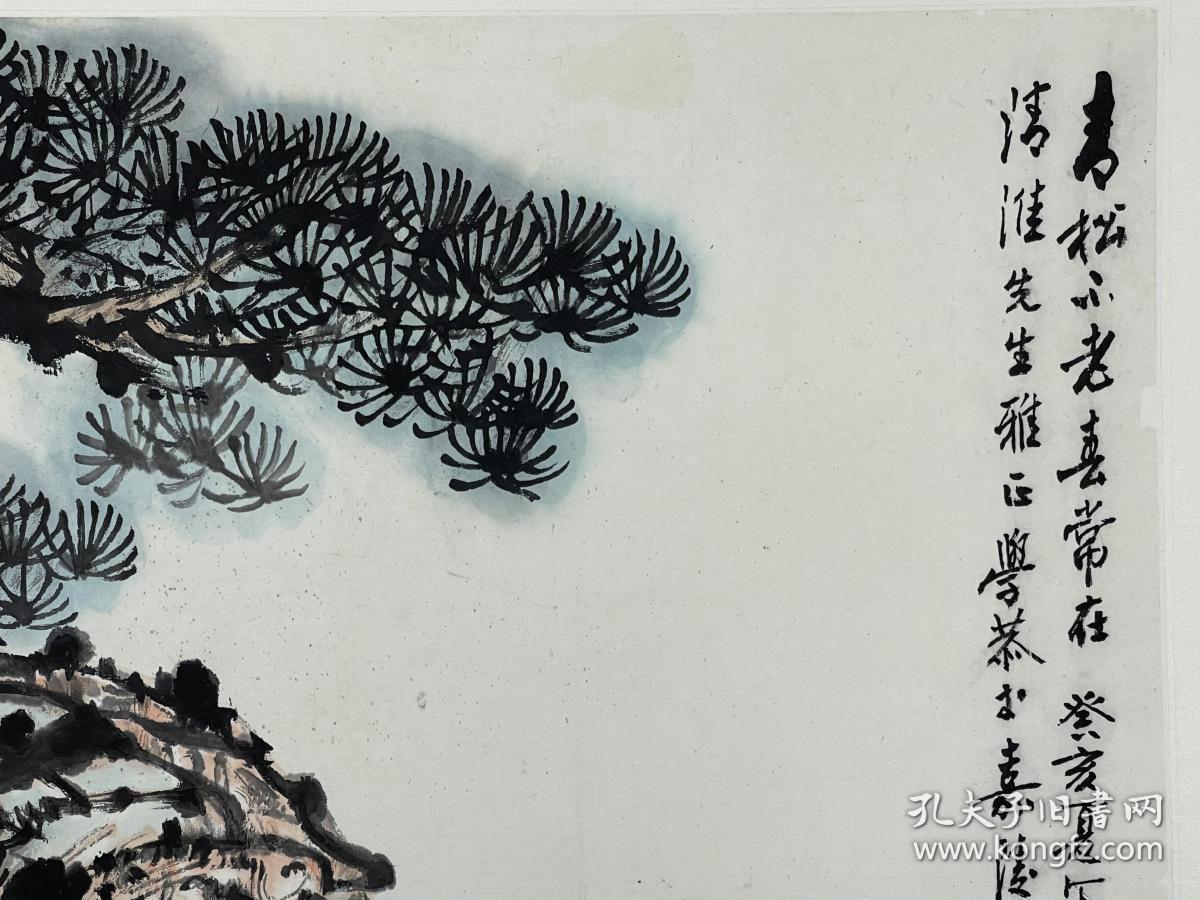 青松不老春常在 癸亥夏
清淮先生雅正 學恭 嘉陵
孔夫子旧书网
www.kongfz.com